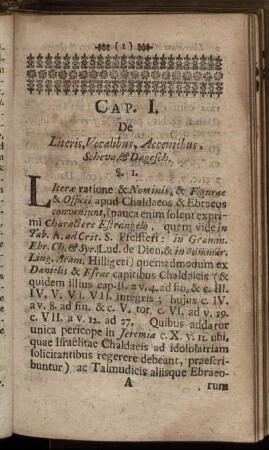 (1)
CAP. I.
De
Literis, Vocalibus, Accentibus,
Scheva, & Dagesch.
§. 1.
Literæ ratione & Nominis, & Figuræ
& Officii apud Chaldaeos & Ebraeos
conveniunt, (pauca enim solent expri-
mi charactere Estrangelo, quem vide in
Tab. A. ad Crit. S. Pfeifferi: in Gramm.
Ebr. Ch. & Syr. Lud. de Dieu, & in
Ling. Aram. Hilligeri) quemadmodum ex
Danielis & Esrae capitibus Chaldaicis (&
quidem illius cap. II. a v. 4. ad fin, & c. III.
IV, V, VI. VII. integris; hujus c. IV.
a v. 8. ad fin. & c. V. tot. c. VI. ad v. 19.
c. VII. a v. 12. ad 27. Quibus addatur
unica pericope in Jeremia c. X. v. 11. ubi,
quae Israëlitae Chaldaeis ad idololatriam
sollicitantibus regerere debeant, praescri-
buntur) ac Talmudicis aliisque Ebraeo-
A rum